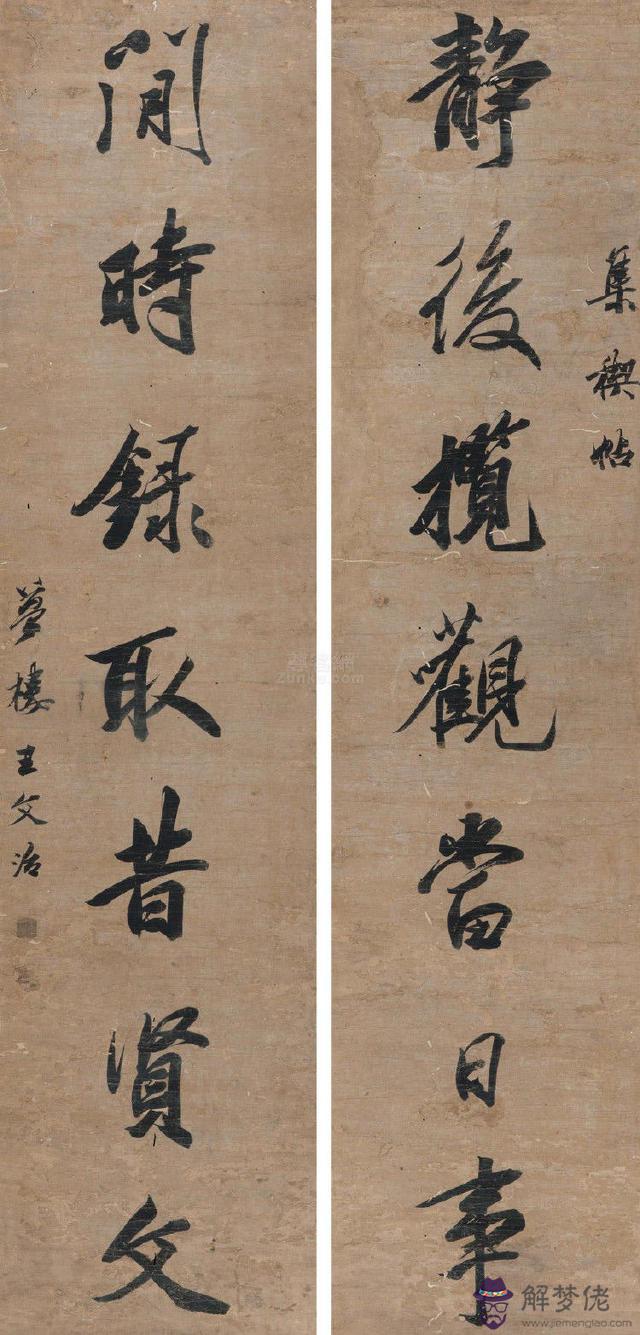 集稧帖
靜後攬觀當日事
閒時録取昔賢文
夢樓王文治
尊客網
Zunke.com
解梦佬
www.jiemenglao.com